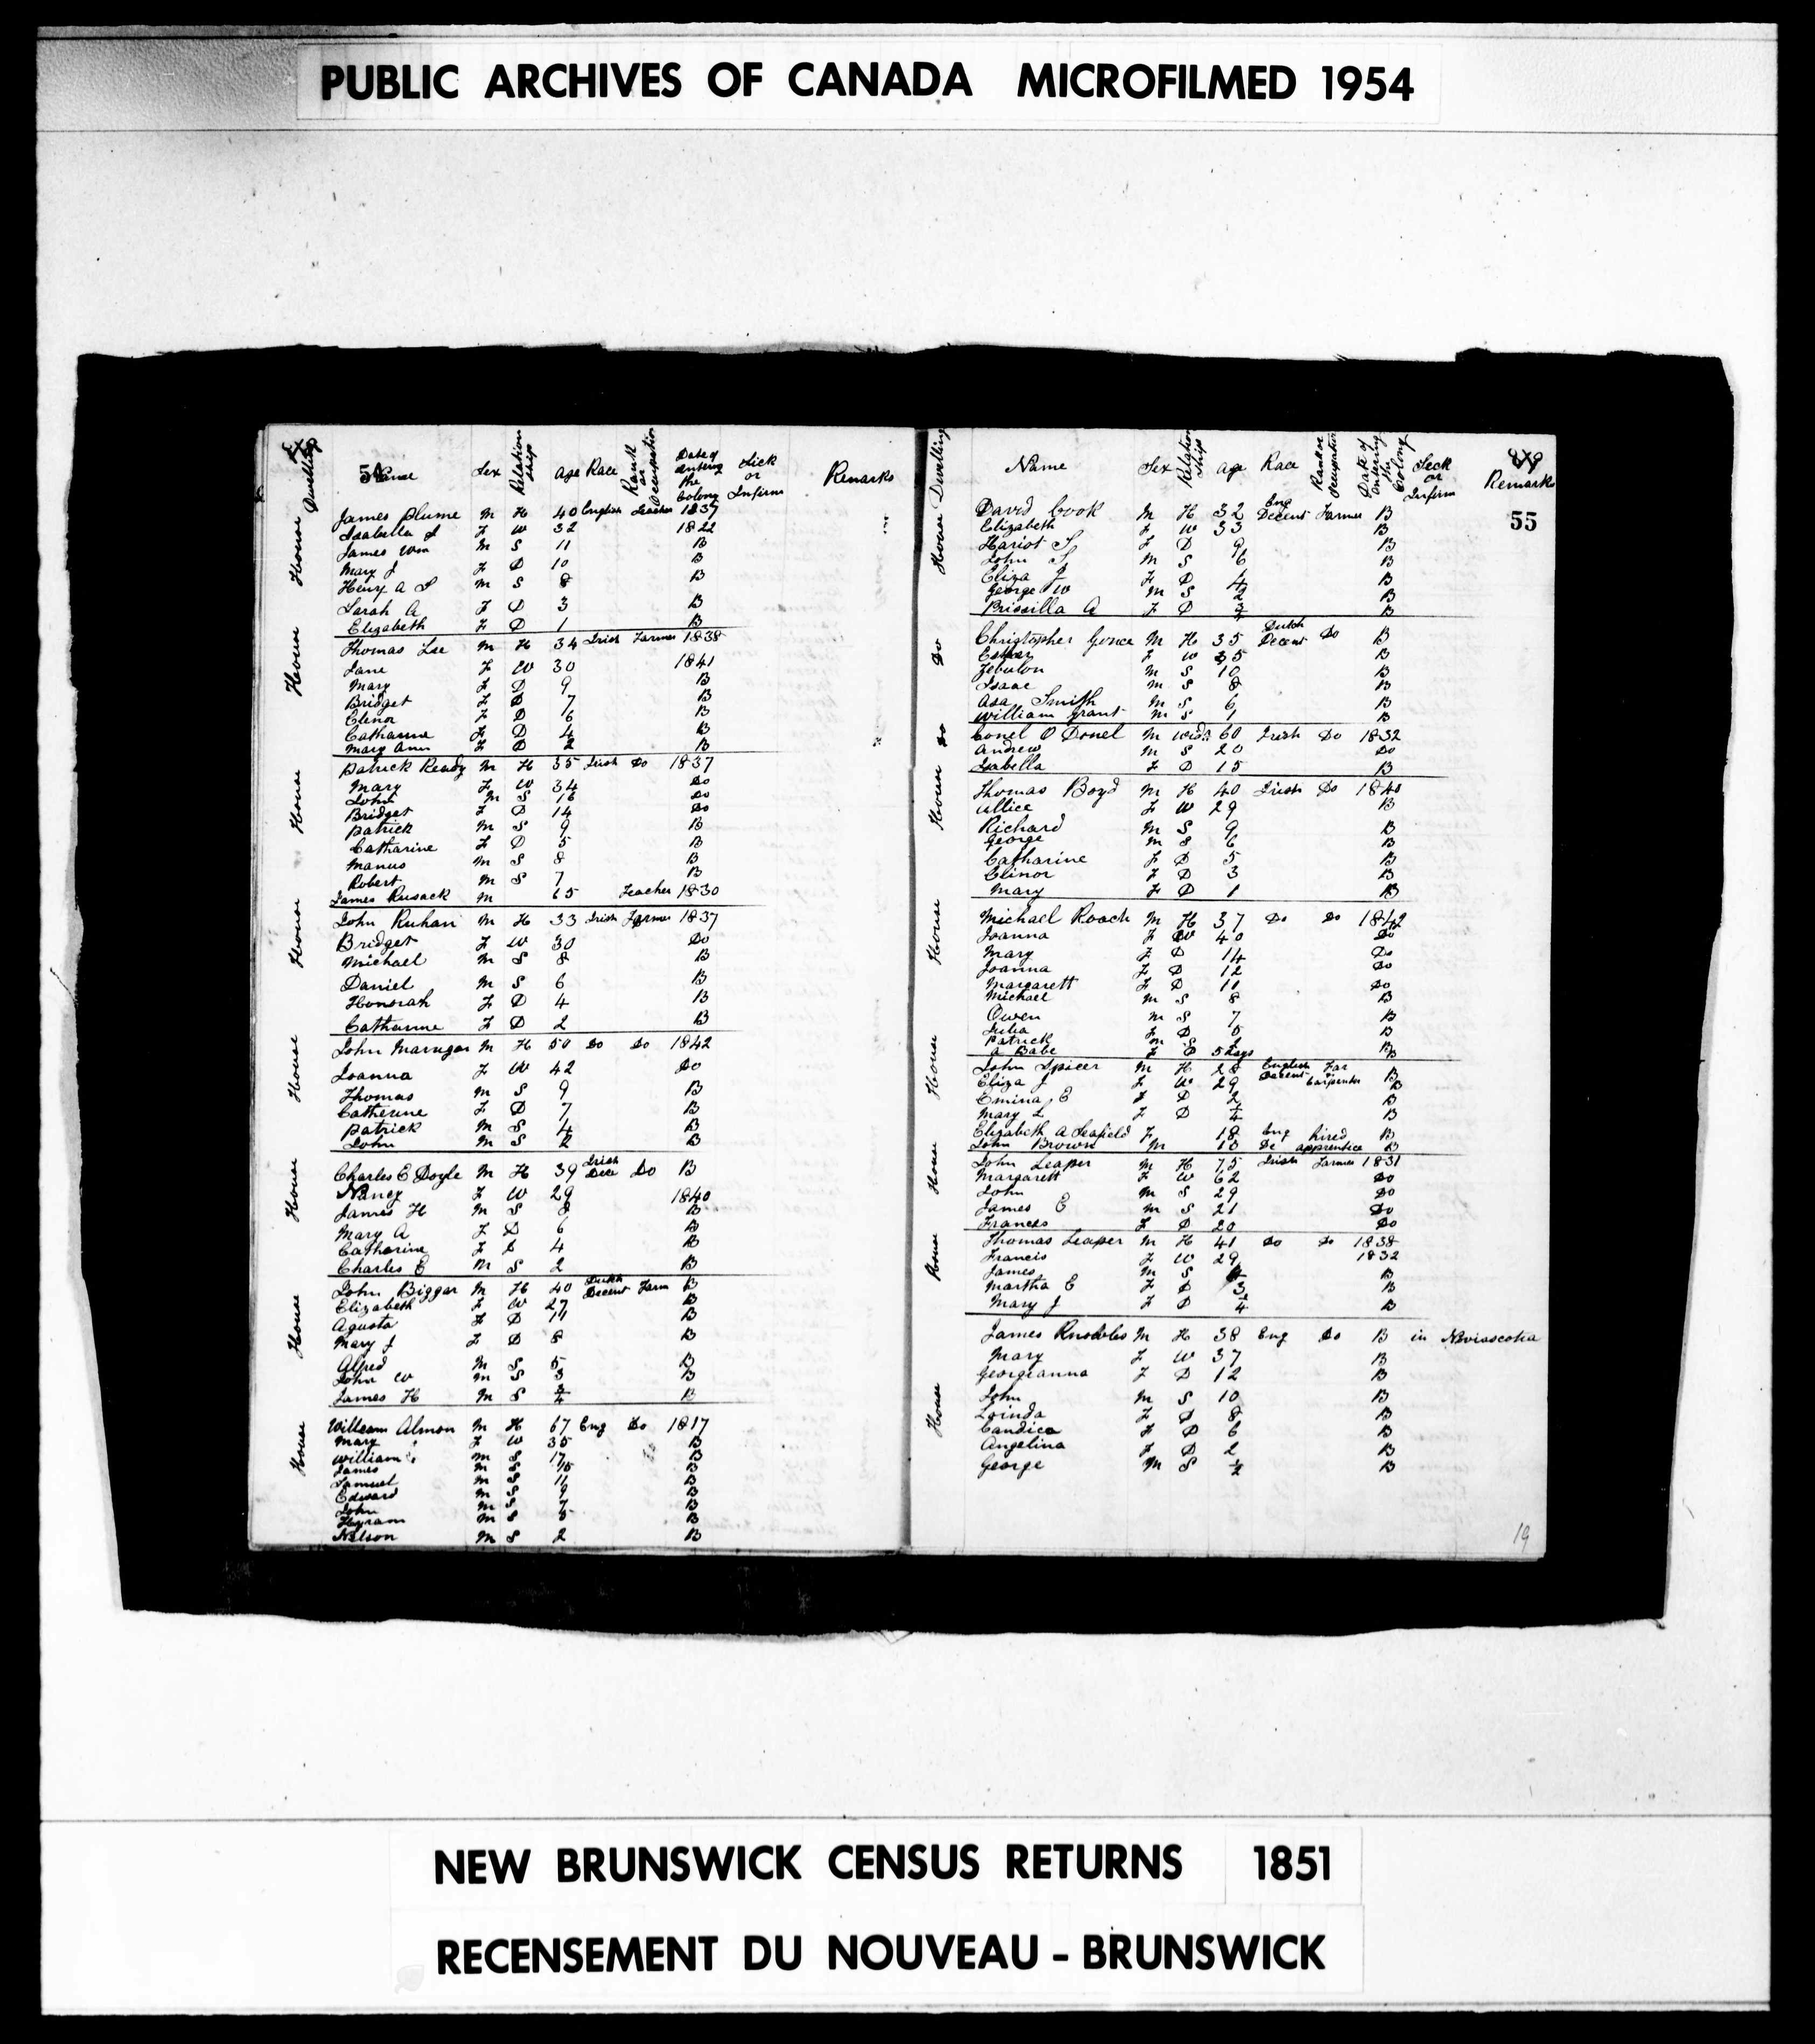 PUBLIC ARCHIVES OF CANADA MICROFILMED 1954
Dwelling 54 Name Sex Relation ship Age Race Rank or Occupation Date of Entering the Colony Sick or Infirm Remarks
House James Plume M H 40 English Teacher 1837
Isabella F W 32 1822
James Wm M S 11 B
Mary J F D 10 B
Henry A S M S 8 B
Sarah A F D 3 B
Elizabeth F D 1 B
House Thomas Lee M H 34 Irish Farmer 1838
Jane F W 30 1841
Mary F D 9 B
Bridget F D 7 B
Elenor F D 6 B
Catharine F D 4 B
Mary Ann F D 2 B
House Patrick Ready M H 35 Irish Do 1837
Mary F W 34 Do
John M S 16 Do
Bridget F D 14 Do
Patrick M S 9 B
Catharine F D 5 B
Manus M S 8 B
Robert M S 7 B
James Rusack M 65 Teacher 1830
House John Ruhan M H 33 Irish Farmer 1837
Bridget F W 30 Do
Michael M S 8 B
Daniel M S 6 B
Honorah F D 4 B
Catharine F D 2 B
House John M H 50 Do Do 1842
Joanna F W 42 Do
Thomas M S 9 B
Catherine F D 7 B
Patrick M S 4 B
John M S 2 B
House Charles E Doyle M H 39 Irish Dece Do B
Nancy F W 29 1840
James H M S 8 B
Mary A F D 6 B
Catharine F D 4 B
Charles E M S 2 B
House John Biggar M H 40 Dutch Decent Farm B
Elizabeth F W 27 B
Agusta F D 11 B
Mary J F D 8 B
Alfred M S 5 B
John W M S 3 B
James H M S 3/4 B
House William Almon M H 67 Eng Do 1817
Mary F W 35 B
William M S 17 B
James M S 15 B
Samuel M S 11 B
Edward M S 9 B
John M S 7 B
Hyram M S 5 B
Nelson M S 2 B
Dwelling Name Sex Relation ships Age Race Rank or Occupation Date of Entering the Colony Sick or Infirm Remarks
55
House David Cook M H 32 Eng Decent Farmer B
Elizabeth F W 33 B
Hariot S F D 9 B
John S M S 6 B
Eliza J F D 4 B
George W M S 2 B
Prissilla A F D B
Do Christopher M H 35 Dutch Decent Do B
Esther F W 35 B
Zebulon M S 10 B
Isaac M S 8 B
Asa Smith M S 6 B
William Grant M S 1 B
Do Conel O Donel M 60 Irish Do 1832
Andrew M S 20 Do
Isabella F D 15 B
House Thomas Boyd M H 40 Irish Do 1840
Allice F W 29 B
Richard M S 9 B
George M S 6 B
Catharine F D 5 B
Elinor F D 3 B
Mary F D 1 B
House Michael Roach M H 37 Do Do 1842
Joanna F W 40 Do
Mary F D 14 Do
Joanna F D 12 Do
Margarett F D 11 Do
Michael M S 8 B
Owen M S 7 B
Julia F D 5 B
Patrick M S B
A Babe F D 5 days B
House John Spicer M H 28 English Decent Far Carpenter B
Eliza J F W 29 B
Emina E F D 2 B
Mary L F D B
Elizabeth A F 18 Eng hired B
John Brown M 18 De apprentice B
House John Leaper M H 75 Irish Farmer 1831
Margarett F W 62 Do
John M S 29 Do
James E M S 21 Do
Frances F D 20 Do
House Thomas Leaper M H 41 Do Do 1838
Francis F W 29 1832
James M S B
Martha E F D 3 B
Mary J F D B
House James Knobles M H 38 Eng Do B in Noviascotia
Mary F W 37 B
Georgeanna F D 12 B
John M S 10 B
Lorinda F D 8 B
Candice F D 6 B
Angelina F D 2 B
George M S 1/2 B
19
NEW BRUNSWICK CENSUS RETURNS 1851
RECENSEMENT DU NOUVEAU - BRUNSWICK